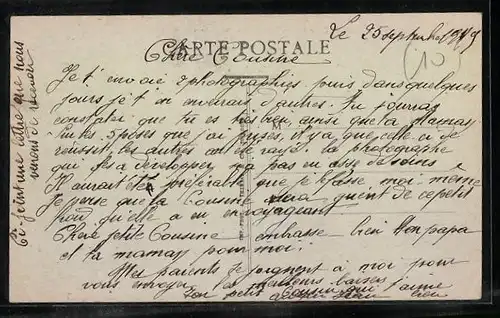 Le 25 septembre 1919
CARTE POSTALE
(10)
Chère Cousine
Je t'envoie photographies puis dans quelques
jours je t'en enverai d'autres. Tu pourras
constater que tu es très bien, ainsi que ta maman
sur les 3 poses que j'ai prises il n'y a que celle-ci de
réussit, les autres ont rayé. la photographe
qui les a developper n'a pas eu asse de soins
Il aurait été préférable que je le fasse moi-même
Je pense que la Cousine sera guérit de ce petit
bou qu'elle a eu en voyageant
Chère petite Cousine embrasse bien ton papa
et ta maman pour moi.
Mes parents se joignent à moi pour
vous envoyer les meilleurs baisers
Ton petit Cousin qui t'aime
bien
Ci-joint une lettre que nous
venons de recevoir